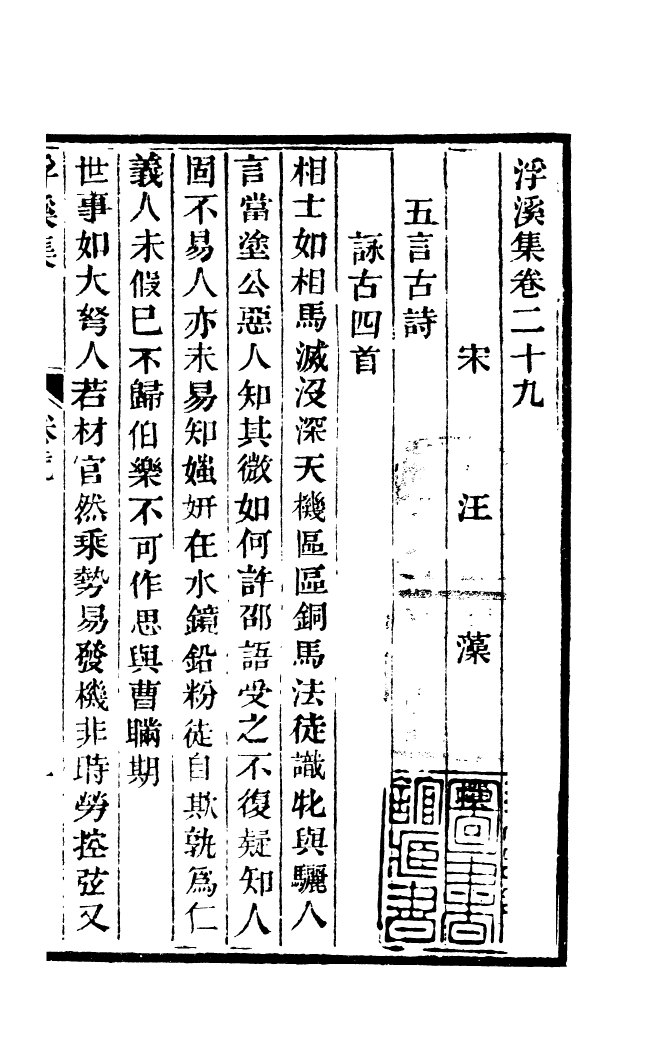 浮溪集卷二十九
宋 汪 藻 撰
五言古詩
詠古四首
相士如相馬滅没深天機區區銅馬法徒識牝與驪人
言當塗公惡人知其微如何許邵語受之不復疑知人
固不易人亦未易知媸妍在水鏡鉛粉徒自欺孰爲仁
義人未假已不歸伯樂不可作思與曹瞞期
世事如大弩人若材官然乘勢易發機非時勞控弦又
浮溪集